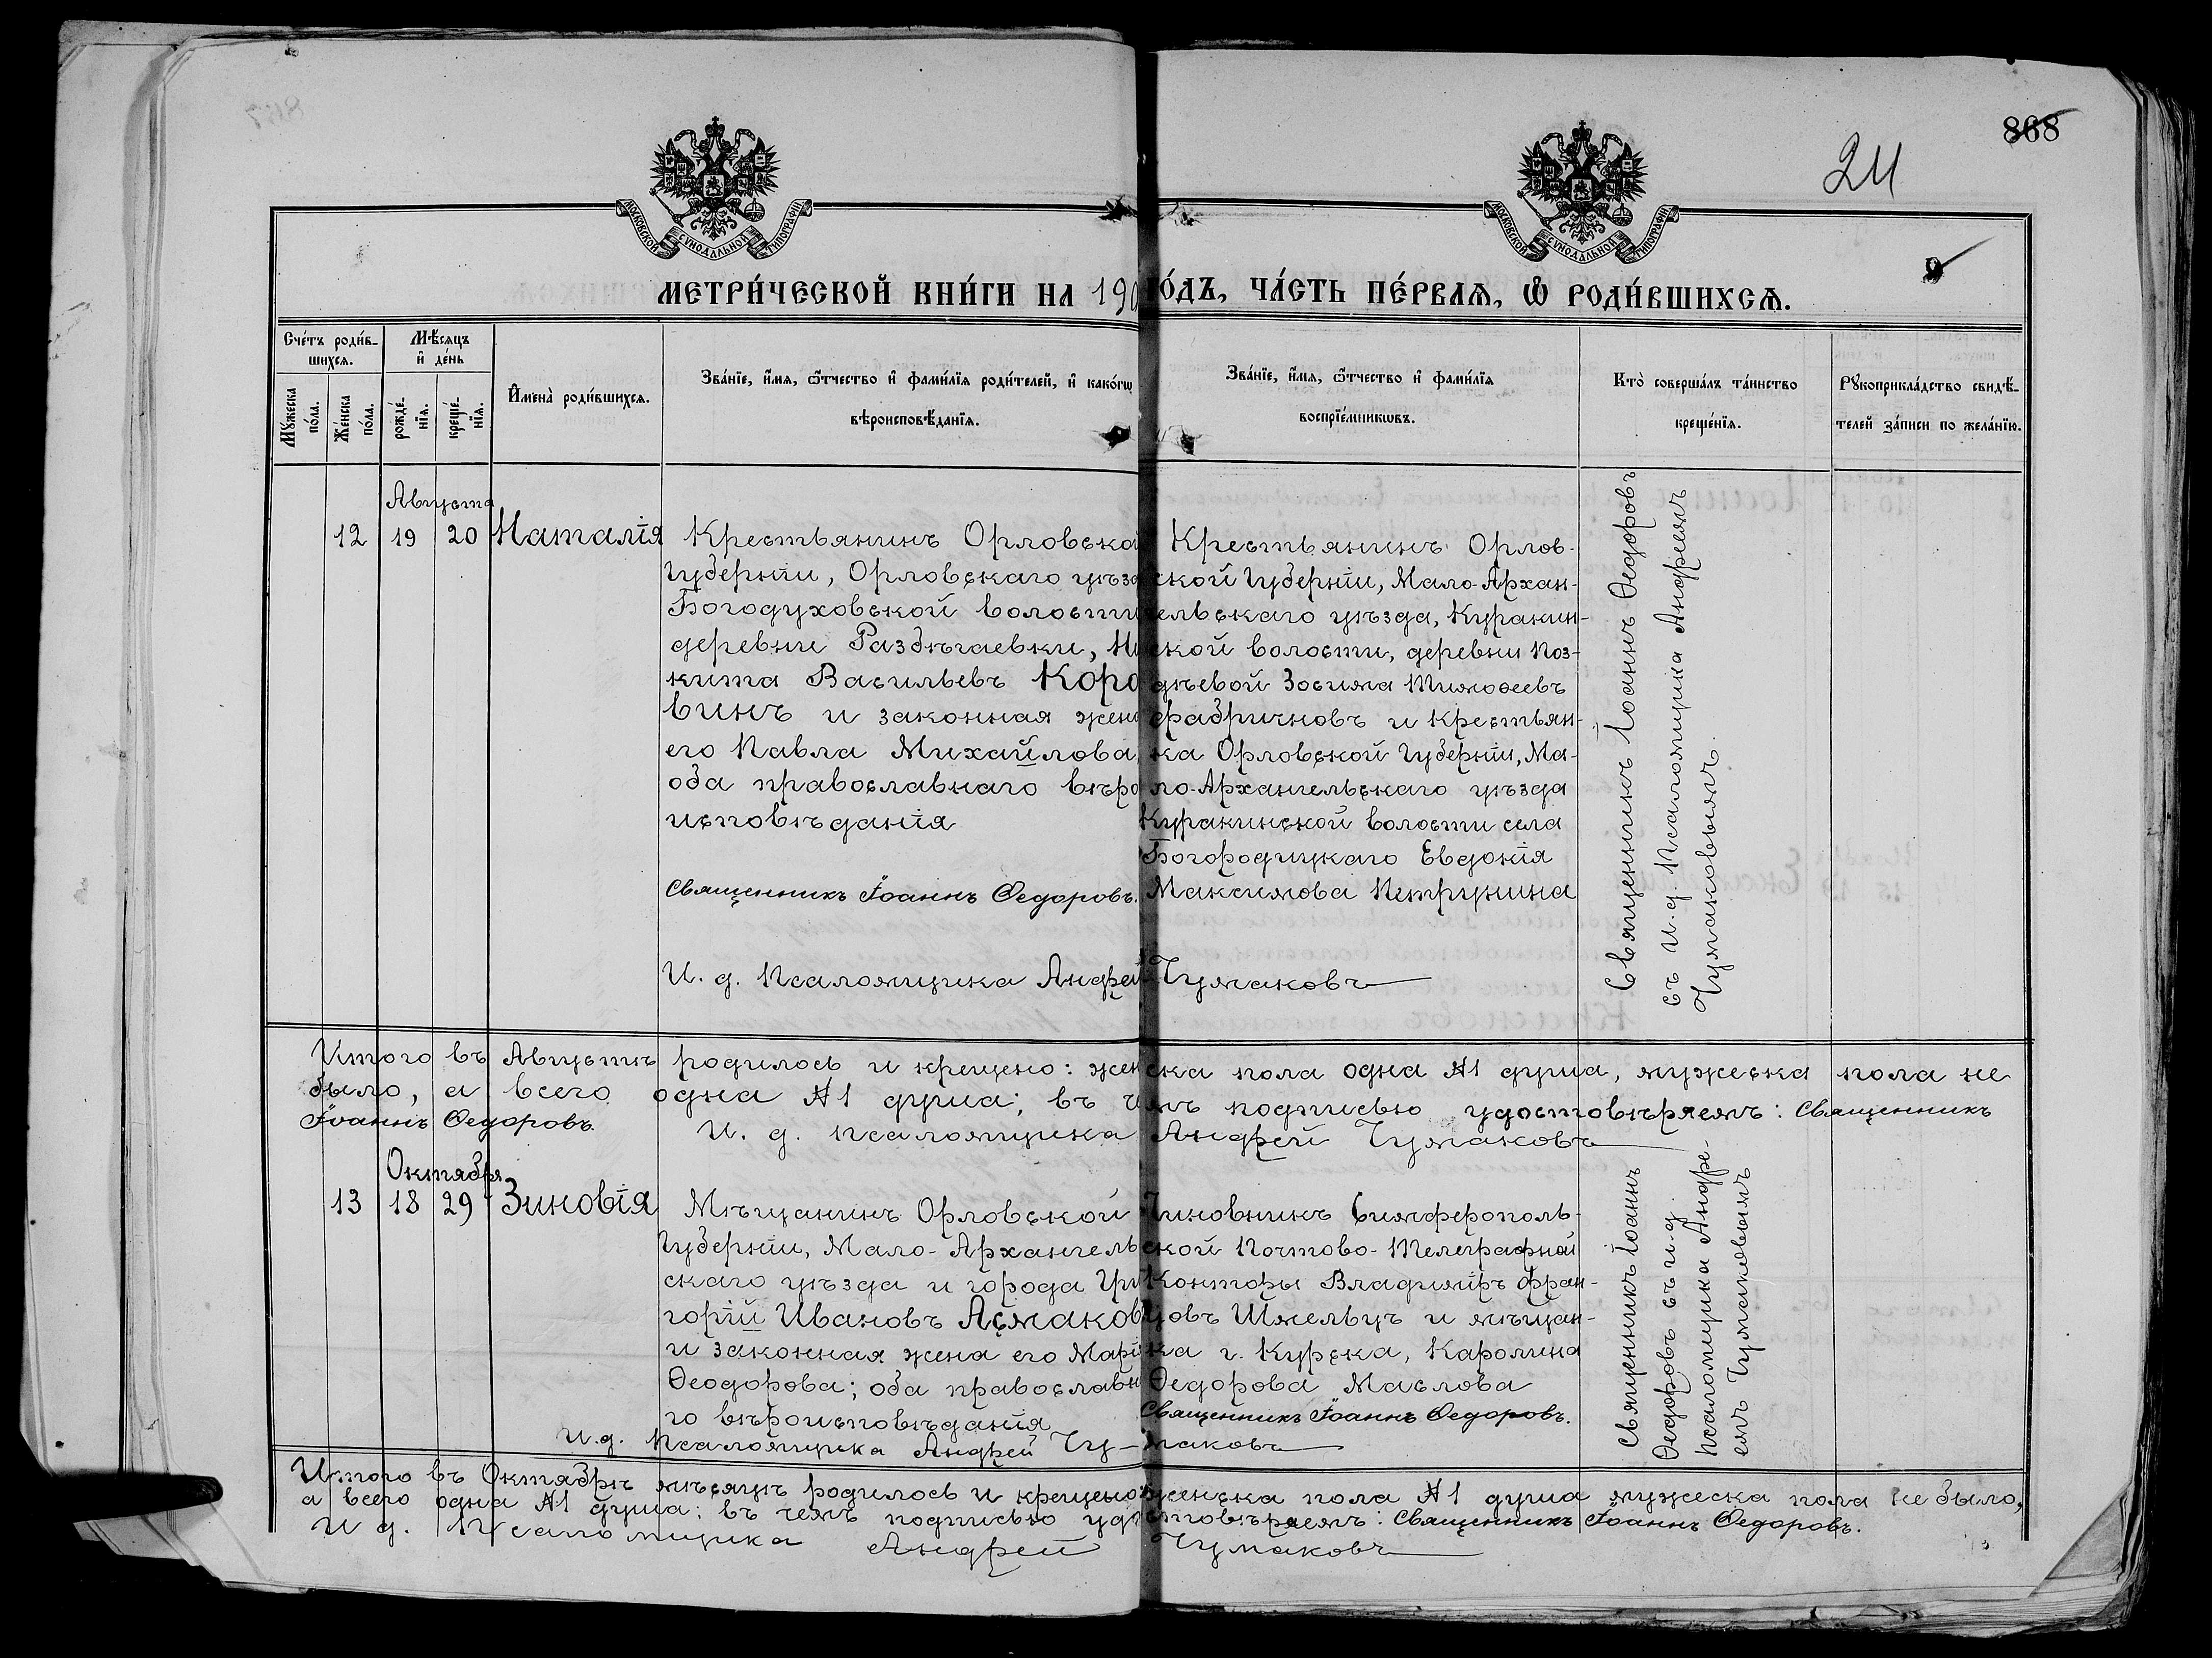 868
24
9
МОСКОВСКОЙ СѴНОДАЛЬНОЙ ТИПОГРАФІИ
МОСКОВСКОЙ СѴНОДАЛЬНОЙ ТИПОГРАФІИ
МЕТРИ́ЧЕСКОЙ КНИ́ГИ НА 190
ГО́ДЪ, ЧА́СТЬ ПЕ́РВАѦ, Ѽ РОДИ́ВШИХСѦ.
Сче́тъ роди́в-
шихсѧ.
Мꙋжеска
по́ла.
Же́нска
по́ла.
Мѣ́сѧцъ
и҆ де́нь
рожде́-
нїѧ.
креще́-
нїѧ.
И҆мена̀ роди́вшихсѧ.
Зва́нїе, и҆́мѧ, ѻ҆́тчество и҆ фами́лїѧ роди́телей, и҆ како́гѡ
вѣроисповѣ́данїѧ.
Зва́нїе, и҆́мѧ, ѻ҆́тчество и҆ фами́лїѧ
воспрїе́мникѡвъ.
Кто̀ соверша́лъ та́инство
креще́нїѧ.
Рꙋкоприкла́дство свидѣ́-
телей за́писи по жела́нїю.
Августа
12 19 20 Наталія
Крестьянинъ Орловской
Губерніи, Орловскаго уѣзда
Богодуховской волости
деревни Раздѣгаевки, Ни
кита Васильевъ Коро
винъ и законная жена
его Павла Михайлова,
оба православнаго вѣро
исповѣданія
Священникъ Іоаннъ Ѳедоровъ.
Крестьянинъ Орлов-
ской Губерніи, Мало-Архан-
ельскаго уѣзда, Куракин-
ской волости, деревни Поз-
днѣевой Зосима Тимоѳеевъ
Фабричновъ и крестьян-
ка Орловской Губерніи, Ма-
ло-Архангельскаго уѣзда
Куракинской волости села
Богородицкаго Евдокія
Максимова Петрунина
И. д. Псаломщика Андрей Чумаковъ
Священникъ Іоаннъ Ѳедоровъ
съ И. д. Псаломщика Андреемъ
Чумаковымъ.
Итого въ Августѣ родилось и крещено: женска пола одна №1 душа, мужеска пола не
было, а всего одна №1 душа; въ чемъ подписью удостовѣряемъ: Священникъ
Іоаннъ Ѳедоровъ.
И. д. псаломщика Андрей Чумаковъ
Октября
13 18 29 Зиновія
Мѣщанинъ Орловской
Губерніи, Мало-Архангель
скаго уѣзда и города Гри
горій Ивановъ Асмаковъ
и законная жена его Марія
Ѳеодорова; оба православна
го вѣроисповѣданія
Чиновникъ Симферополь-
ской Почтово-Телеграфной
Конторы Владиміръ Фран-
цовъ Шмельцъ и мѣщан-
ка г. Курска, Каролина
Ѳедорова Маслова
Священникъ Іоаннъ Ѳедоровъ.
И.д. Псаломщика Андрей Чу-маковъ
Священникъ Іоаннъ
Ѳедоровъ съ и.д.
псаломщика Андре-
емъ Чумаковымъ
Итого въ Октябрѣ мѣсяцѣ родилось и крещено: женска пола №1 душа мужеска пола не было,
а всего одна №1 душа; въ чемъ подписью удостовѣряемъ: Священникъ Іоаннъ Ѳедоровъ.
И д. Псаломщика Андрей Чумаковъ